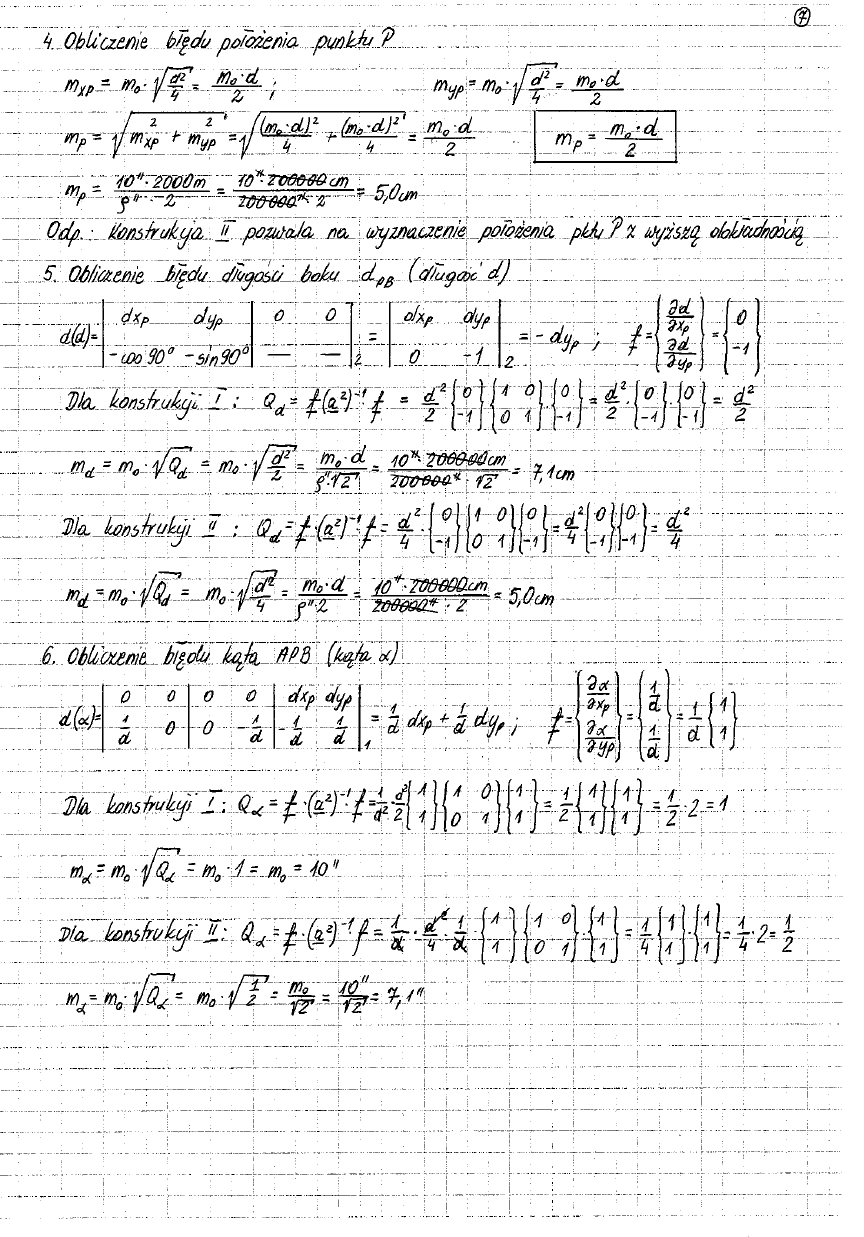 ⑦
4. Obliczenie błędu położenia punktu P
m_xp = m₀·√(d²/4) = (m₀·d)/2 ; m_yp = m₀·√(d²/4) = (m₀·d)/2
m_p = √(m²_xp + m²_yp) = √((m₀·d)²/4 + (m₀·d)²/4) = (m₀·d)/2 m_p = (m₀·d)/2
m_p = (10"·2000m)/(ρ"·2) = (10"·200000cm)/(200000"·2) = 5,0cm
Odp.: Konstrukcja II pozwala na wyznaczenie położenia pktu P z wyższą dokładnością
5. Obliczenie błędu długości boku d_PB (długość d)
d(d) = | dx_p dy_p | 0 0 ; -cos90° -sin90° | — — |₂ = | dx_p dy_p ; 0 -1 |₂ = -dy_p ; f = {∂d/∂x_p ; ∂d/∂y_p} = {0 ; -1}
Dla konstrukcji I : Q_d = f·(a²)⁻¹·f = d²/2 {0 ; -1}{1 0 ; 0 1}{0 ; -1} = d²/2·{0 ; -1}·{0 ; -1} = d²/2
m_d = m₀·√Q_d = m₀·√(d²/2) = (m₀·d)/(ρ"·√2) = (10"·200000cm)/(200000"·√2) = 7,1cm
Dla konstrukcji II : Q_d = f·(a²)⁻¹·f = d²/4·{0 ; -1}{1 0 ; 0 1}{0 ; -1} = d²/4{0 ; -1}{0 ; -1} = d²/4
m_d = m₀·√Q_d = m₀·√(d²/4) = (m₀·d)/(ρ"·2) = (10"·200000cm)/(200000"·2) = 5,0cm
6. Obliczenie błędu kąta APB (kąta α)
d(α) = | 0 0 | 0 0 | dx_p dy_p ; 1/d 0 | 0 -1/d | -1/d 1/d |₁ = 1/d dx_p + 1/d dy_p ; f = {∂α/∂x_p ; ∂α/∂y_p} = {1/d ; 1/d} = 1/d {1 ; 1}
Dla konstrukcji I : Q_α = f·(a²)⁻¹·f = 1/d²·d²/2{1 ; 1}{1 0 ; 0 1}{1 ; 1} = 1/2{1 ; 1}{1 ; 1} = 1/2·2 = 1
m_α = m₀·√Q_α = m₀·1 = m₀ = 10"
Dla konstrukcji II : Q_α = f·(a²)⁻¹f = 1/d·d²/4·1/d·{1 ; 1}{1 0 ; 0 1}·{1 ; 1} = 1/4{1 ; 1}·{1 ; 1} = 1/4·2 = 1/2
m_α = m₀·√Q_α = m₀·√(1/2) = m₀/√2 = 10"/√2 = 7,1"